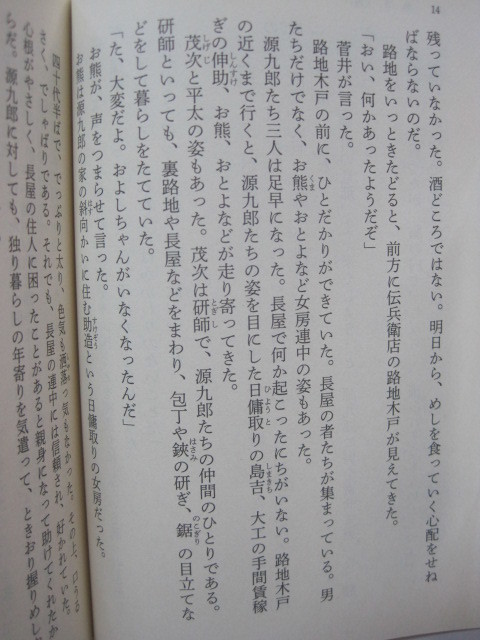 14
残っていなかった。酒どころではない。明日から、めしを食っていく心配をせね
ばならないのだ。
路地をいっときたどると、前方に伝兵衛店の路地木戸が見えてきた。
「おい、何かあったようだぞ」
菅井が言った。
路地木戸の前に、ひとだかりができていた。長屋の者たちが集まっている。男
たちだけでなく、お熊やおとよなど女房連中の姿もあった。
源九郎たち三人は足早になった。長屋で何か起こったにちがいない。路地木戸
の近くまで行くと、源九郎たちの姿を目にした日傭取りの島吉、大工の手間賃稼
ぎの伸助、お熊、おとよなどが走り寄ってきた。
茂次と平太の姿もあった。茂次は研師で、源九郎たちの仲間のひとりである。
研師といっても、裏路地や長屋などをまわり、包丁や鋏の研ぎ、鋸の目立てな
どをして暮らしをたてていた。
「た、大変だよ。およしちゃんがいなくなったんだ」
お熊が、声をつまらせて言った。
お熊は源九郎の家の斜向かいに住む助造という日傭取りの女房だった。
四十代半ばで、でっぷりと太り、色気も洒落っ気もなかった。その上、口うる
さく、でしゃばりである。それでも、長屋の連中には信頼され、好かれていた。
心根がやさしく、長屋の住人に困ったことがあると親身になって助けてくれたか
らだ。源九郎に対しても、独り暮らしの年寄りを気遣って、ときおり握りめし